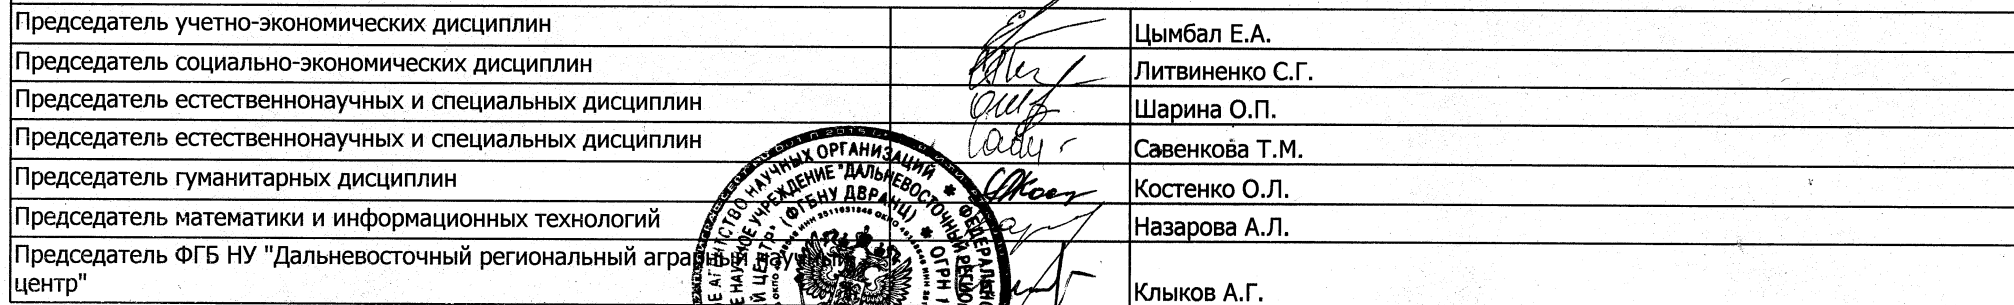 Председатель учетно-экономических дисциплин Цымбал Е.А.
Председатель социально-экономических дисциплин Литвиненко С.Г.
Председатель естественнонаучных и специальных дисциплин Шарина О.П.
Председатель естественнонаучных и специальных дисциплин Савенкова Т.М.
Председатель гуманитарных дисциплин Костенко О.Л.
Председатель математики и информационных технологий Назарова А.Л.
Председатель ФГБ НУ "Дальневосточный региональный аграрный научный
центр" Клыков А.Г.
НАУЧНЫХ ОРГАНИЗАЦИЙ * ФЕДЕРАЛЬНО
НАУЧНОЕ УЧРЕЖДЕНИЕ "ДАЛЬНЕВОСТОЧНЫЙ
ЦЕНТР" (ФГБНУ ДВРАНЦ) * ОГРН